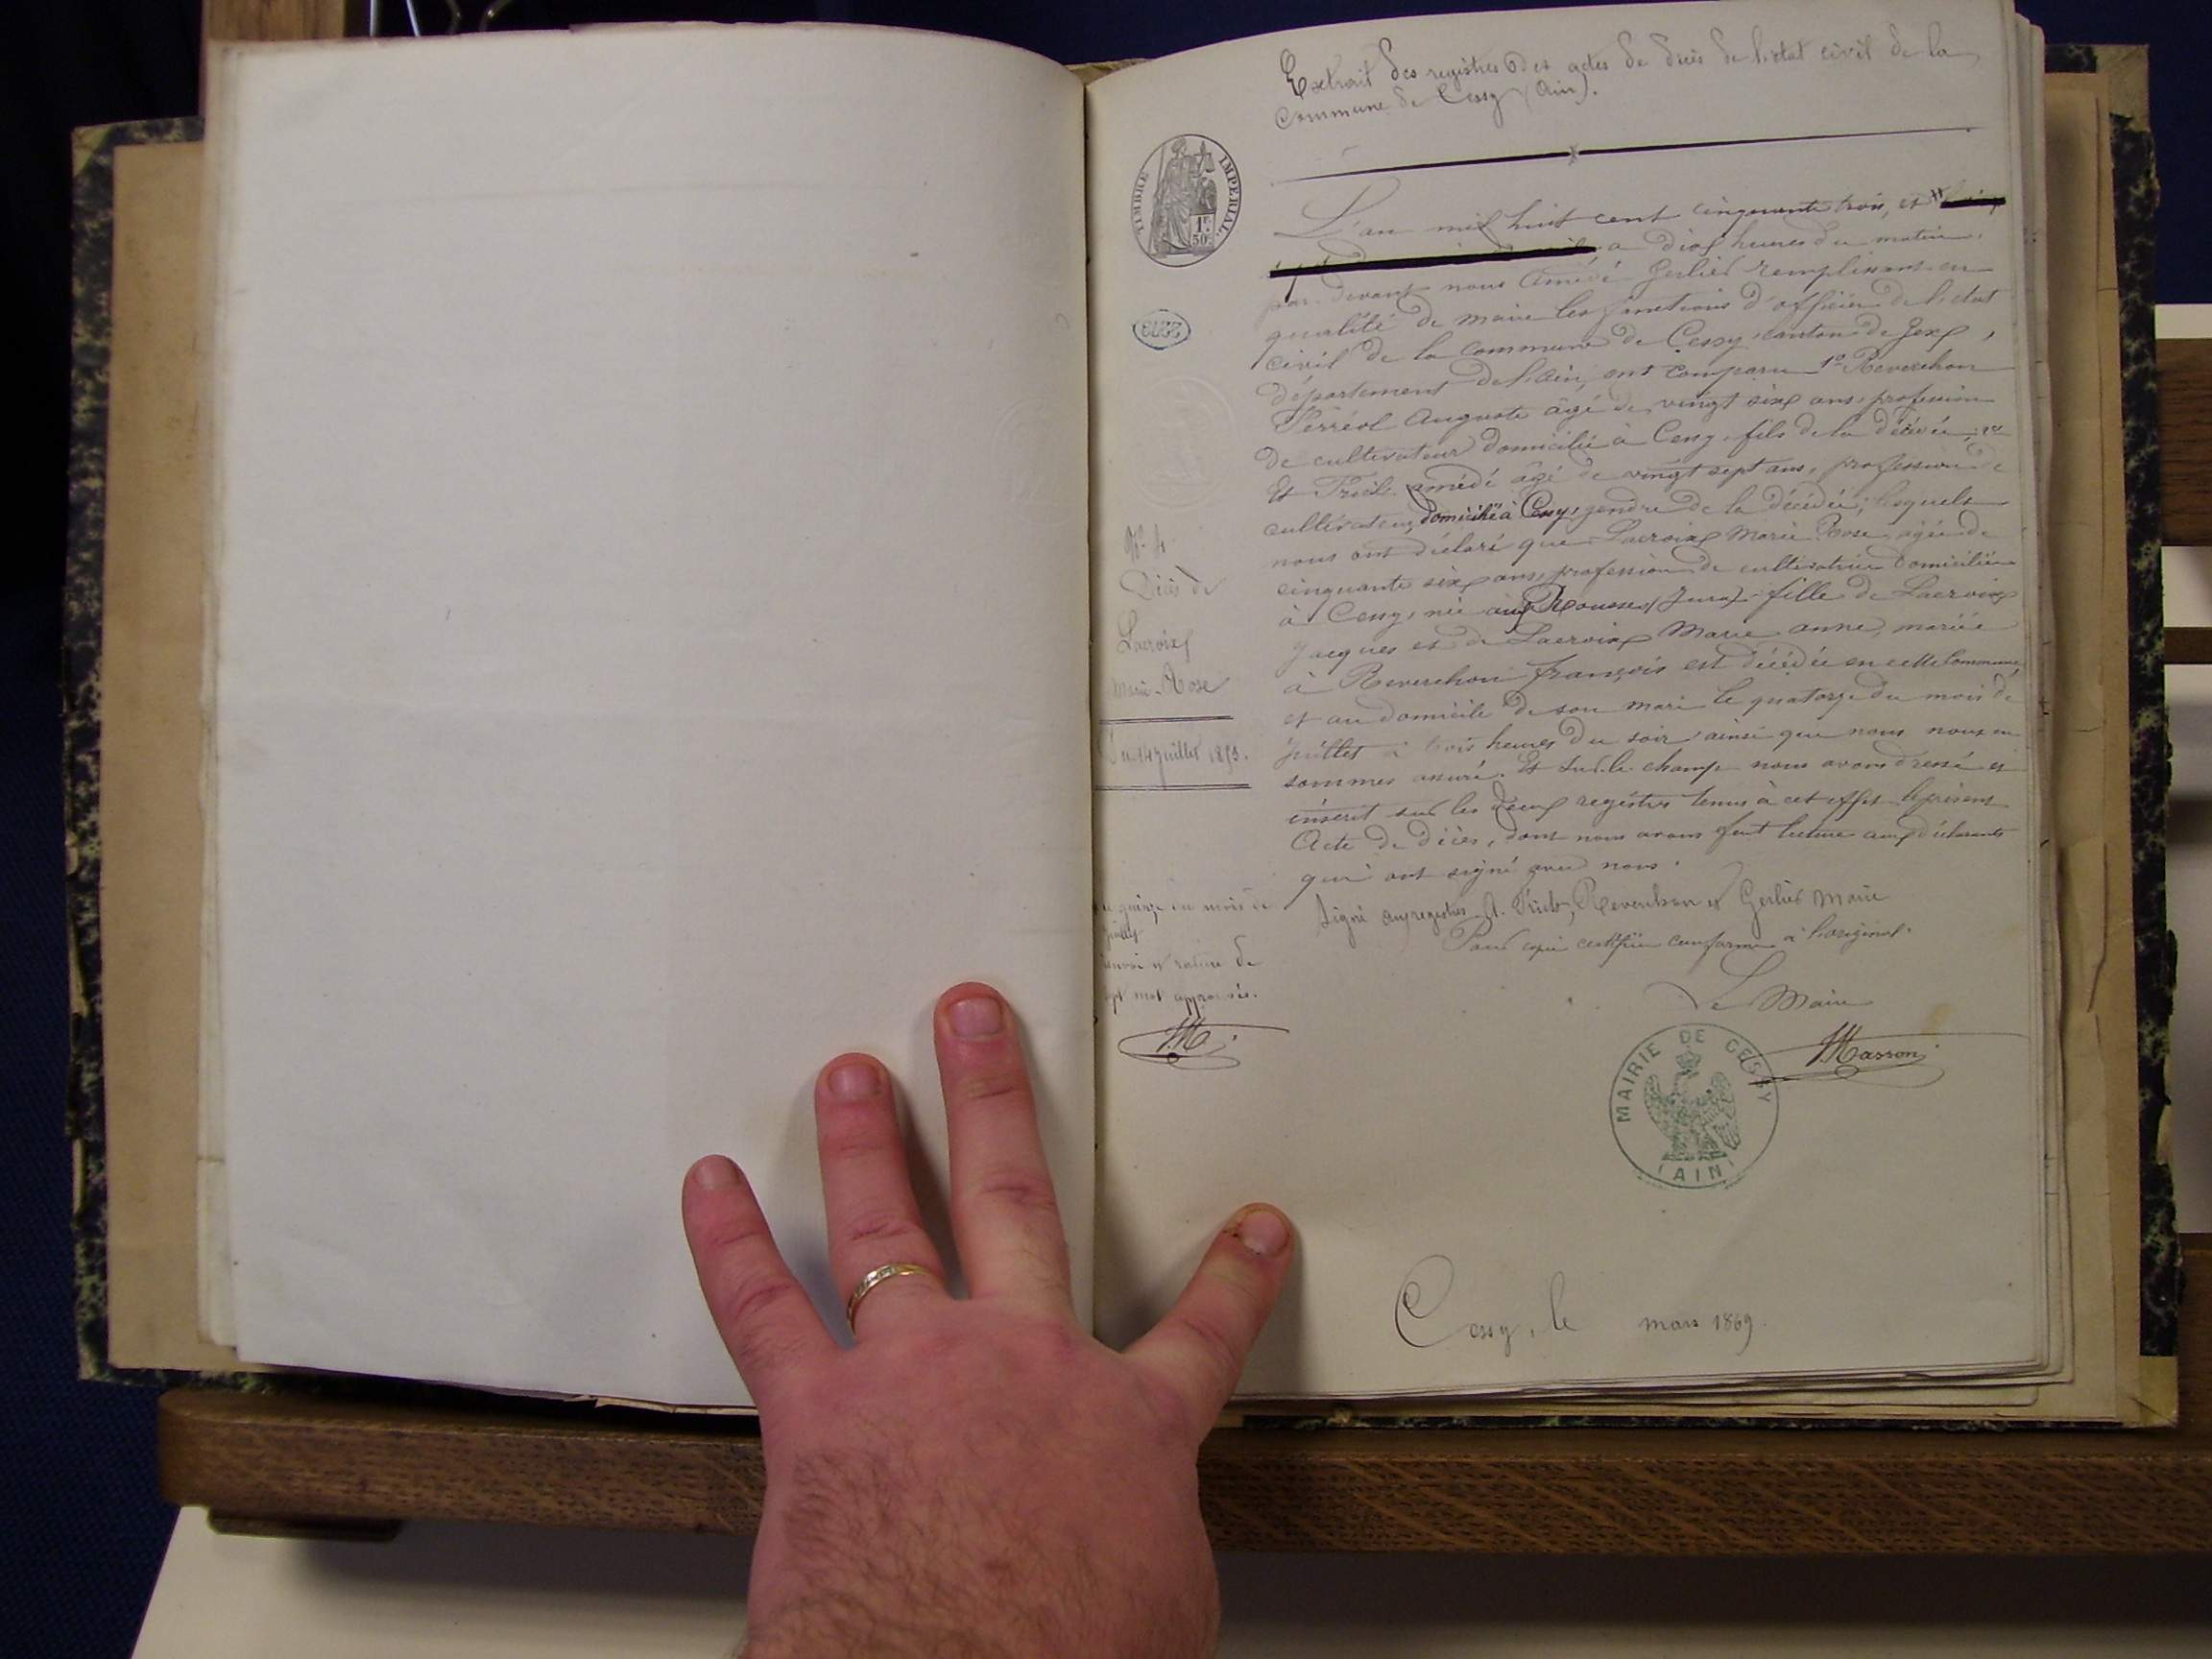 Extrait des registres des actes de décès de l'état civil de la
Commune de Cessy (Ain).
TIMBRE IMPERIAL
1F.
50c.
2273
L'an mil huit cent cinquante trois, et
à dix heures du matin,
par devant nous Amédé Gerlier remplissant en
qualité de maire les fonctions d'officier de l'état
civil de la commune de Cessy, canton de Gex,
département de l'Ain, ont comparu 1º Reverchon
Férréol Auguste âgé de vingt six ans, profession
de cultivateur domicilié à Cessy, fils de la décédée,
Et amédé âgé de vingt sept ans, profession de
cultivateur, domicilié à Cessy, gendre de la décédée; lesquels
nous ont déclaré que Lacroix Marie Rose, agée de
cinquante six ans, profession de cultivatrice domiciliée
à Cessy, née aux Rousses (Jura) fille de Lacroix
Jacques et de Lacroix Marie anne, mariée
à Reverchon françois est décédée en cette Commune,
et au domicile de son mari le quatorze du mois de
juillet à trois heures du soir ainsi que nous nous en
sommes assuré. Et sur le champ nous avons dressé et
inscrit sur les deux registres tenus à cet effet le présent
Acte de décès, dont nous avons fait lecture aux déclarants
qui ont signé avec nous.
Signé aux registres A. Reverchon et Gerlier Maire
Pour copie certifiée conforme à l'original.
Le Maire
Masson
MAIRIE DE CESSY
(AIN)
Cessy, le mars 1869.
Nº 4.
Décès de
Lacroix
Marie-Rose
Du 14 juillet 1853.
le quinze du mois de
juillet
renvoi et rature de
sept mot approuvés.
M